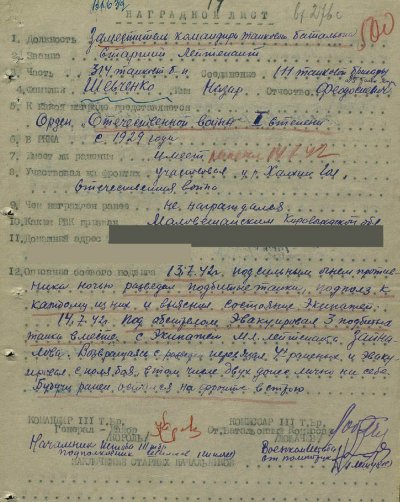 НАГРАДНОЙ ЛИСТ
1. Должность Заместитель командира танкового батальона
2. Звание Старший лейтенант
3. Часть 314 танковый б-н Соединение 111 танковой бригады
4. Фамилия Шевченко Имя Назар Отчество Феодосиевич
5. К какой награде представляется
Орден Отечественной война II степени
6. В РККА с 1929 года
7. Имеет ли ранения имеет 14.7.42
8. Участвовал на фронтах участвовал в р. Халхин Гол
Отечественная война
9. Чем награжден ранее не награждался
10. Каким РВК призван Кировоградской обл
11. Домашний адрес
12. Описание боевого подвига 13.7.42г. под сильным огнем против-
ника ночью разведал подбитые танки, подполз к
каждому из них и выяснил состояние экипажей.
14.7.42г. Под обстрелом эвакуировал 3 подбитых
танка вместе с экипажем мл. лейтенанта
Возвращаясь с разведки 4х раненых и эваку-
ировал с поля боя, в том числе двух донес лично на себе.
Будучи ранен, остался на фронте в строю
КОМАНДИР 111 Т.БР.
Генерал-майор
КОМИССАР 111 Т.БР.
Ст. Батальонный Комиссар
Начальник штаба 111 тбр
подполковник
ЗАКЛЮЧЕНИЕ СТАРШИХ НАЧАЛЬНИКОВ